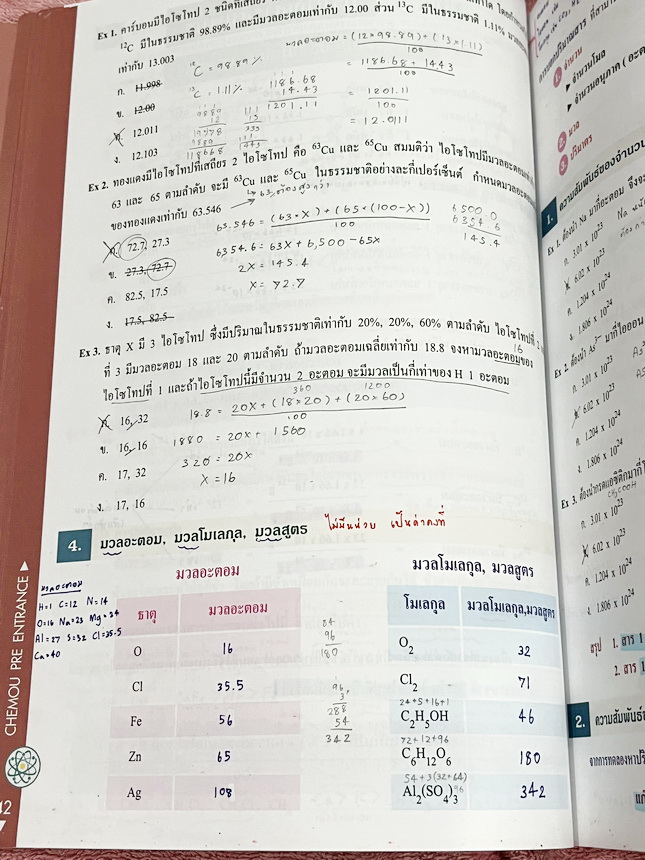 Ex 1. คาร์บอนมีไอโซโทป 2 ชนิดที่เสถียร
¹²C มีในธรรมชาติ 98.89% และมีมวลอะตอมเท่ากับ 12.00 ส่วน ¹³C มีในธรรมชาติ 1.11%
เท่ากับ 13.003
ก. 11.998
ข. 12.00
ค. 12.011
ง. 12.103
¹²C = 98.89%
¹³C = 1.11%
มวลอะตอม = (12×98.89)+(13×1.11)
100
= 1186.68 + 14.43
100
= 1201.11
100
= 12.0111
1186.68
14.43
1201.11
Ex 2. ทองแดงมีไอโซโทปที่เสถียร 2 ไอโซโทป คือ ⁶³Cu และ ⁶⁵Cu สมมติว่า ไอโซโทปมีมวลอะตอมเท่ากับ
63 และ 65 ตามลำดับ จะมี ⁶³Cu และ ⁶⁵Cu ในธรรมชาติอย่างละกี่เปอร์เซ็นต์ กำหนดมวลอะตอม
ของทองแดงเท่ากับ 63.546
ก. 72.7, 27.3
ข. 27.3, 72.7
ค. 82.5, 17.5
ง. 17.5, 82.5
63.546 = (63·X)+(65×(100-X))
100
6354.6 = 63X + 6,500 - 65X
2X = 145.4
X = 72.7
6500.0
6354.6
145.4
Ex 3. ธาตุ X มี 3 ไอโซโทป ซึ่งมีปริมาณในธรรมชาติเท่ากับ 20%, 20%, 60% ตามลำดับ ไอโซโทปที่ 2
ที่ 3 มีมวลอะตอม 18 และ 20 ตามลำดับ ถ้ามวลอะตอมเฉลี่ยเท่ากับ 18.8 จงหามวลอะตอมของ
16
ไอโซโทปที่ 1 และถ้าไอโซโทปนี้มีจำนวน 2 อะตอม จะมีมวลเป็นกี่เท่าของ H 1 อะตอม
ก. 16, 32
ข. 16, 16
ค. 17, 32
ง. 17, 16
360 1200
18.8 = 20X + (18×20) + (20×60)
100
1880 = 20X + 1560
320 = 20X
X = 16
4. มวลอะตอม, มวลโมเลกุล, มวลสูตร
ไม่มีหน่วย เป็นค่าคงที่
มวลอะตอม
H=1 C=12 N=14
O=16 Na=23 Mg=24
Al=27 S=32 Cl=35.5
Ca=40
มวลอะตอม
ธาตุ มวลอะตอม
O 16
Cl 35.5
Fe 56
Zn 65
Ag 108
84
96
180
96
3
288
54
342
มวลโมเลกุล, มวลสูตร
โมเลกุล มวลโมเลกุล,มวลสูตร
O₂ 32
Cl₂ 71
24+5+16+1
C₂H₅OH 46
72+12+96
C₆H₁₂O₆ 180
54+3(32+64)
Al₂(SO₄)₃ 342
CHEMOU PRE ENTRANCE
จำนวน
จำนวนโมล
มวล
ปริมาตร
1. ความสัมพันธ์ของจำนวน
ก. 3.01 x 10²³
ข. 6.02 x 10²³
ค. 1.204 x 10²⁴
ง. 1.806 x 10²⁴
ก. 3.01 x 10²³
ข. 6.02 x 10²³
ค. 1.204 x 10²⁴
ง. 1.806 x 10²⁴
CH₃COOH
ก. 3.01 x 10²³
ข. 6.02 x 10²³
ค. 1.204 x 10²⁴
ง. 1.806 x 10²⁴
สรุป 1. สาร 1
2. สาร 1
2. ความสัมพันธ์